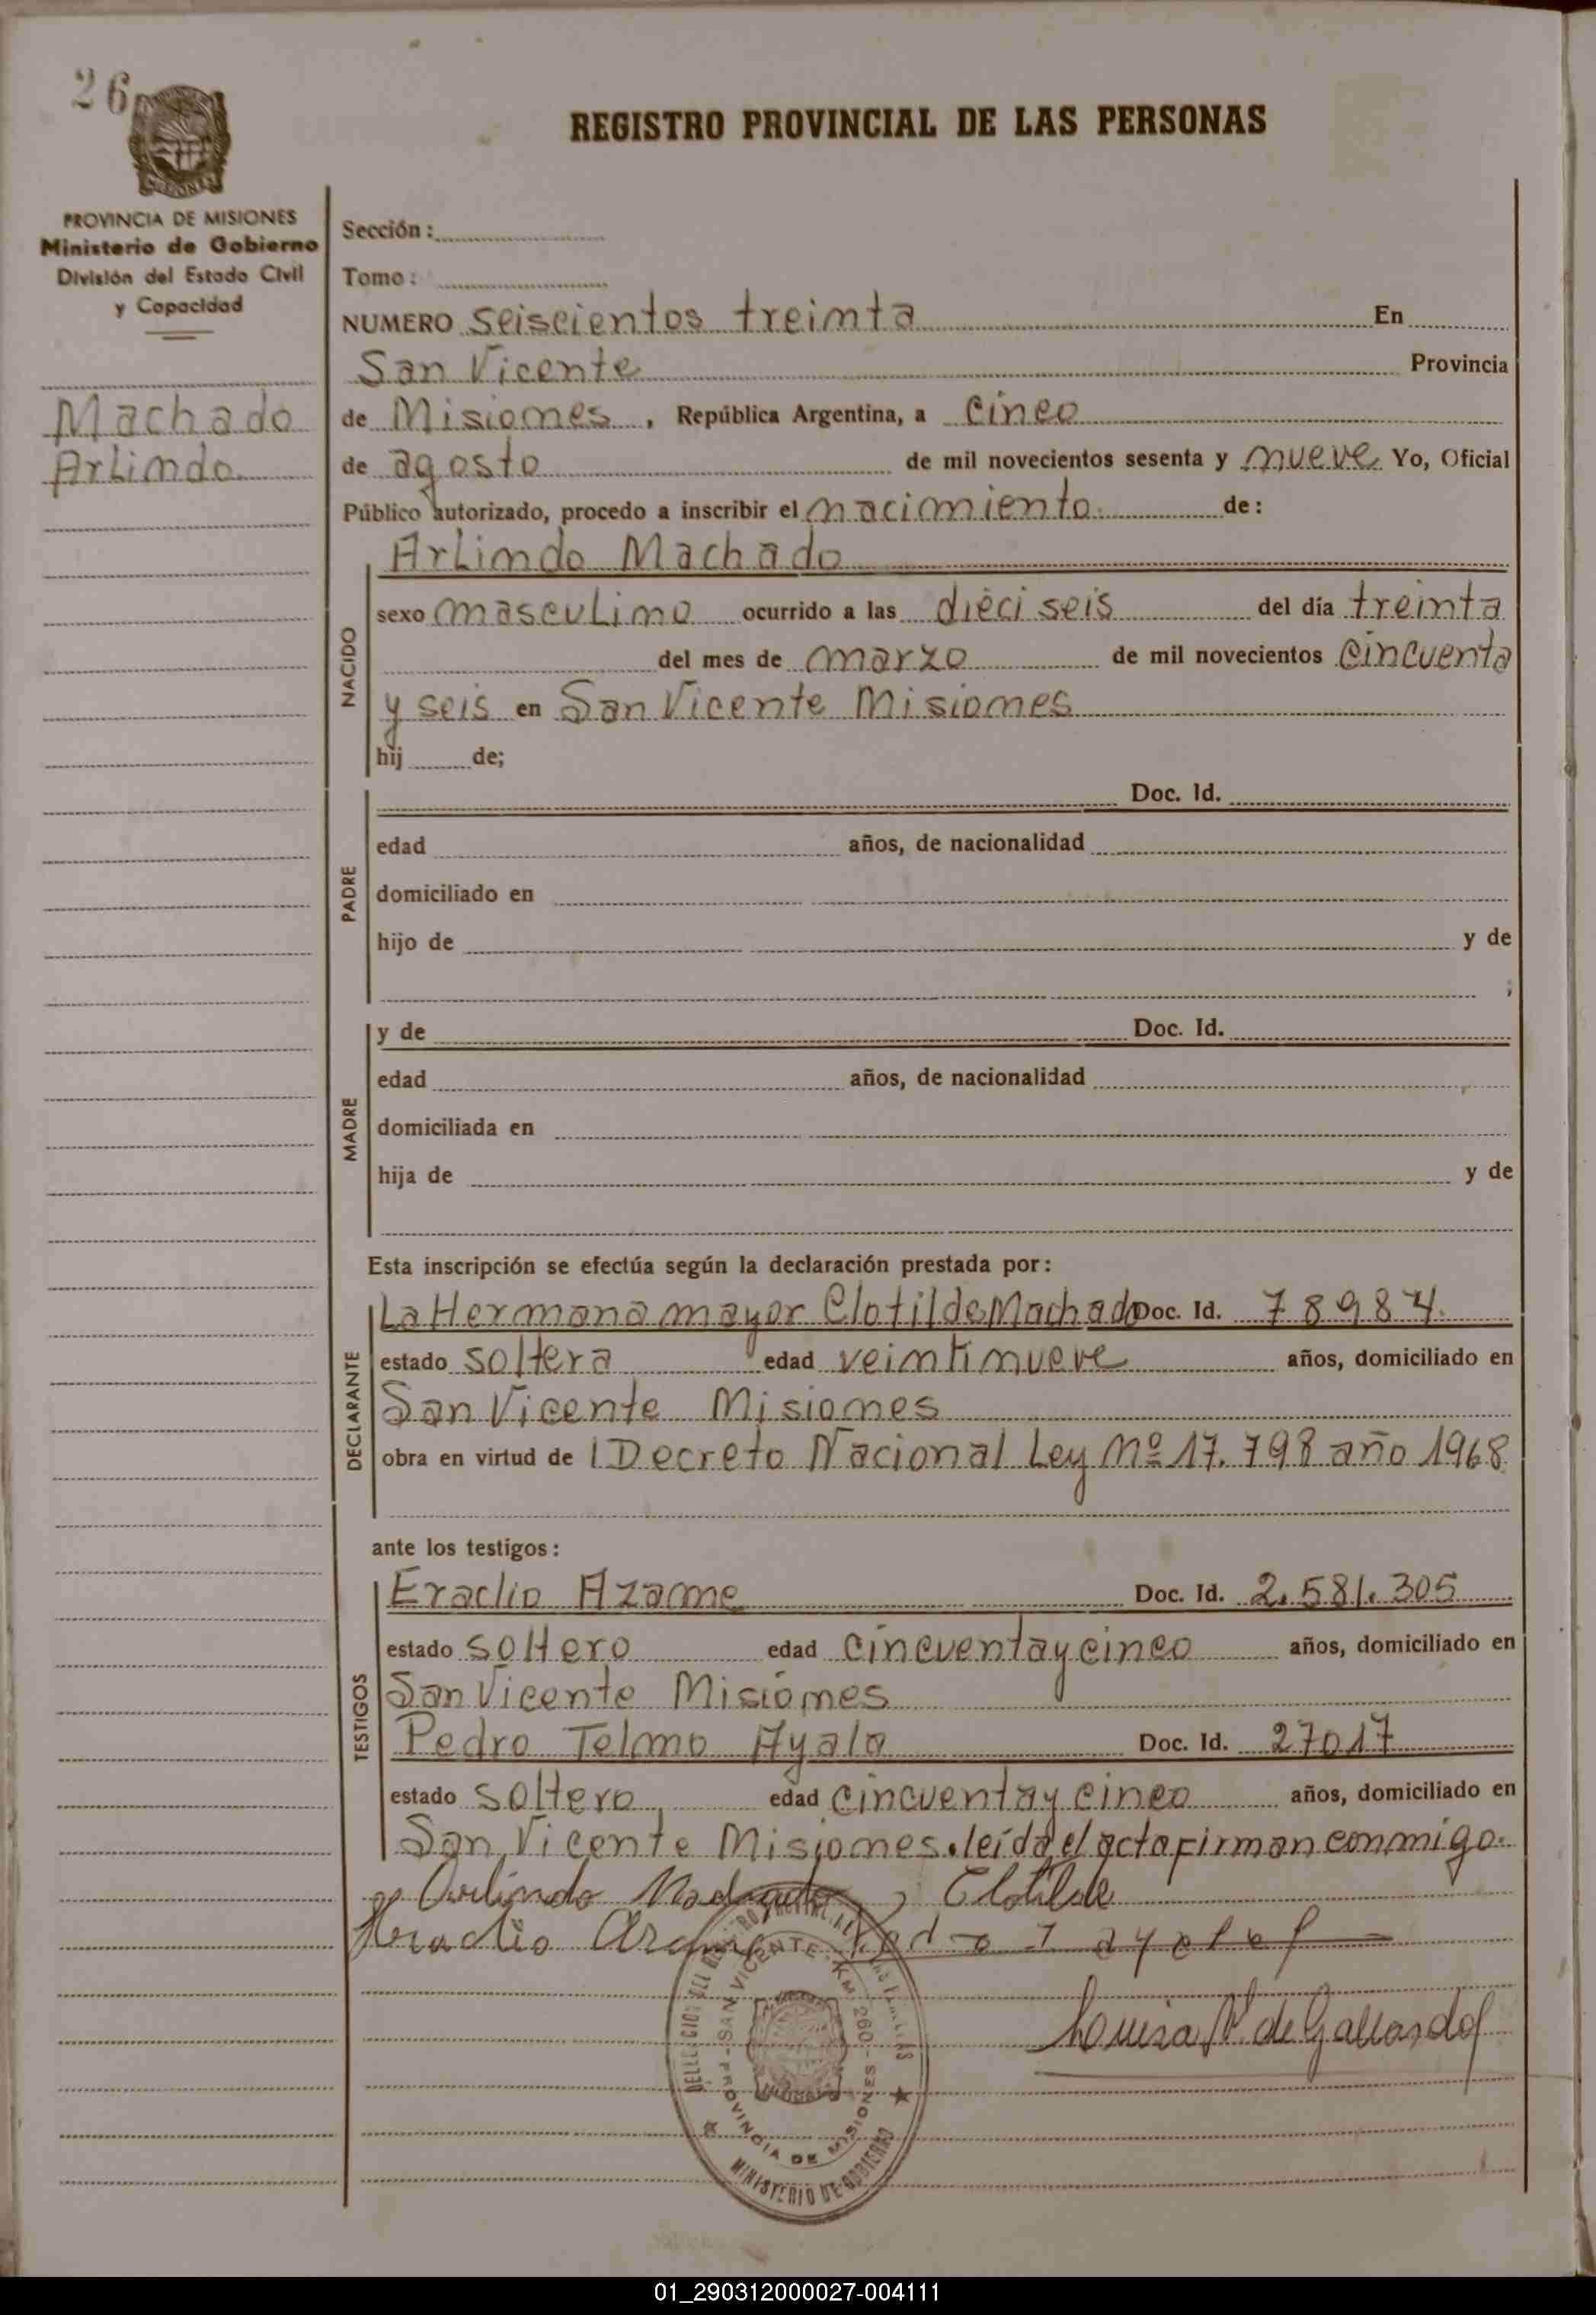 26
REGISTRO PROVINCIAL DE LAS PERSONAS
PROVINCIA DE MISIONES
Ministerio de Gobierno
División del Estado Civil
y Capacidad
Machado
Arlindo
Sección:
Tomo:
NUMERO seiscientos treinta En
San Vicente Provincia
de Misiones, República Argentina, a cinco
de agosto de mil novecientos sesenta y nueve Yo, Oficial
Público autorizado, procedo a inscribir el nacimiento de:
NACIDO
Arlindo Machado
sexo masculino ocurrido a las dieciseis del día treinta
del mes de marzo de mil novecientos cincuenta
y seis en San Vicente Misiones
hij de;
PADRE
Doc. Id.
edad años, de nacionalidad
domiciliado en
hijo de y de
;
MADRE
y de Doc. Id.
edad años, de nacionalidad
domiciliada en
hija de y de
Esta inscripción se efectúa según la declaración prestada por:
DECLARANTE
La Hermana mayor Clotilde Machado Doc. Id. 78984.
estado soltera edad veintinueve años, domiciliado en
San Vicente Misiones
obra en virtud de l Decreto Nacional Ley Nº 17.798 año 1968
ante los testigos:
TESTIGOS
Eraclio Azame Doc. Id. 2.581.305
estado soltero edad cincuenta y cinco años, domiciliado en
San Vicente Misiones
Pedro Telmo Ayala Doc. Id. 27017
estado soltero edad cincuenta y cinco años, domiciliado en
San Vicente Misiones. leída el acta firman conmigo.
Arlindo Clotilde
Luisa de Gallardo
SAN VICENTE - KM 260 -
PROVINCIA DE MISIONES
MINISTERIO DE GOBIERNO
01_290312000027-004111